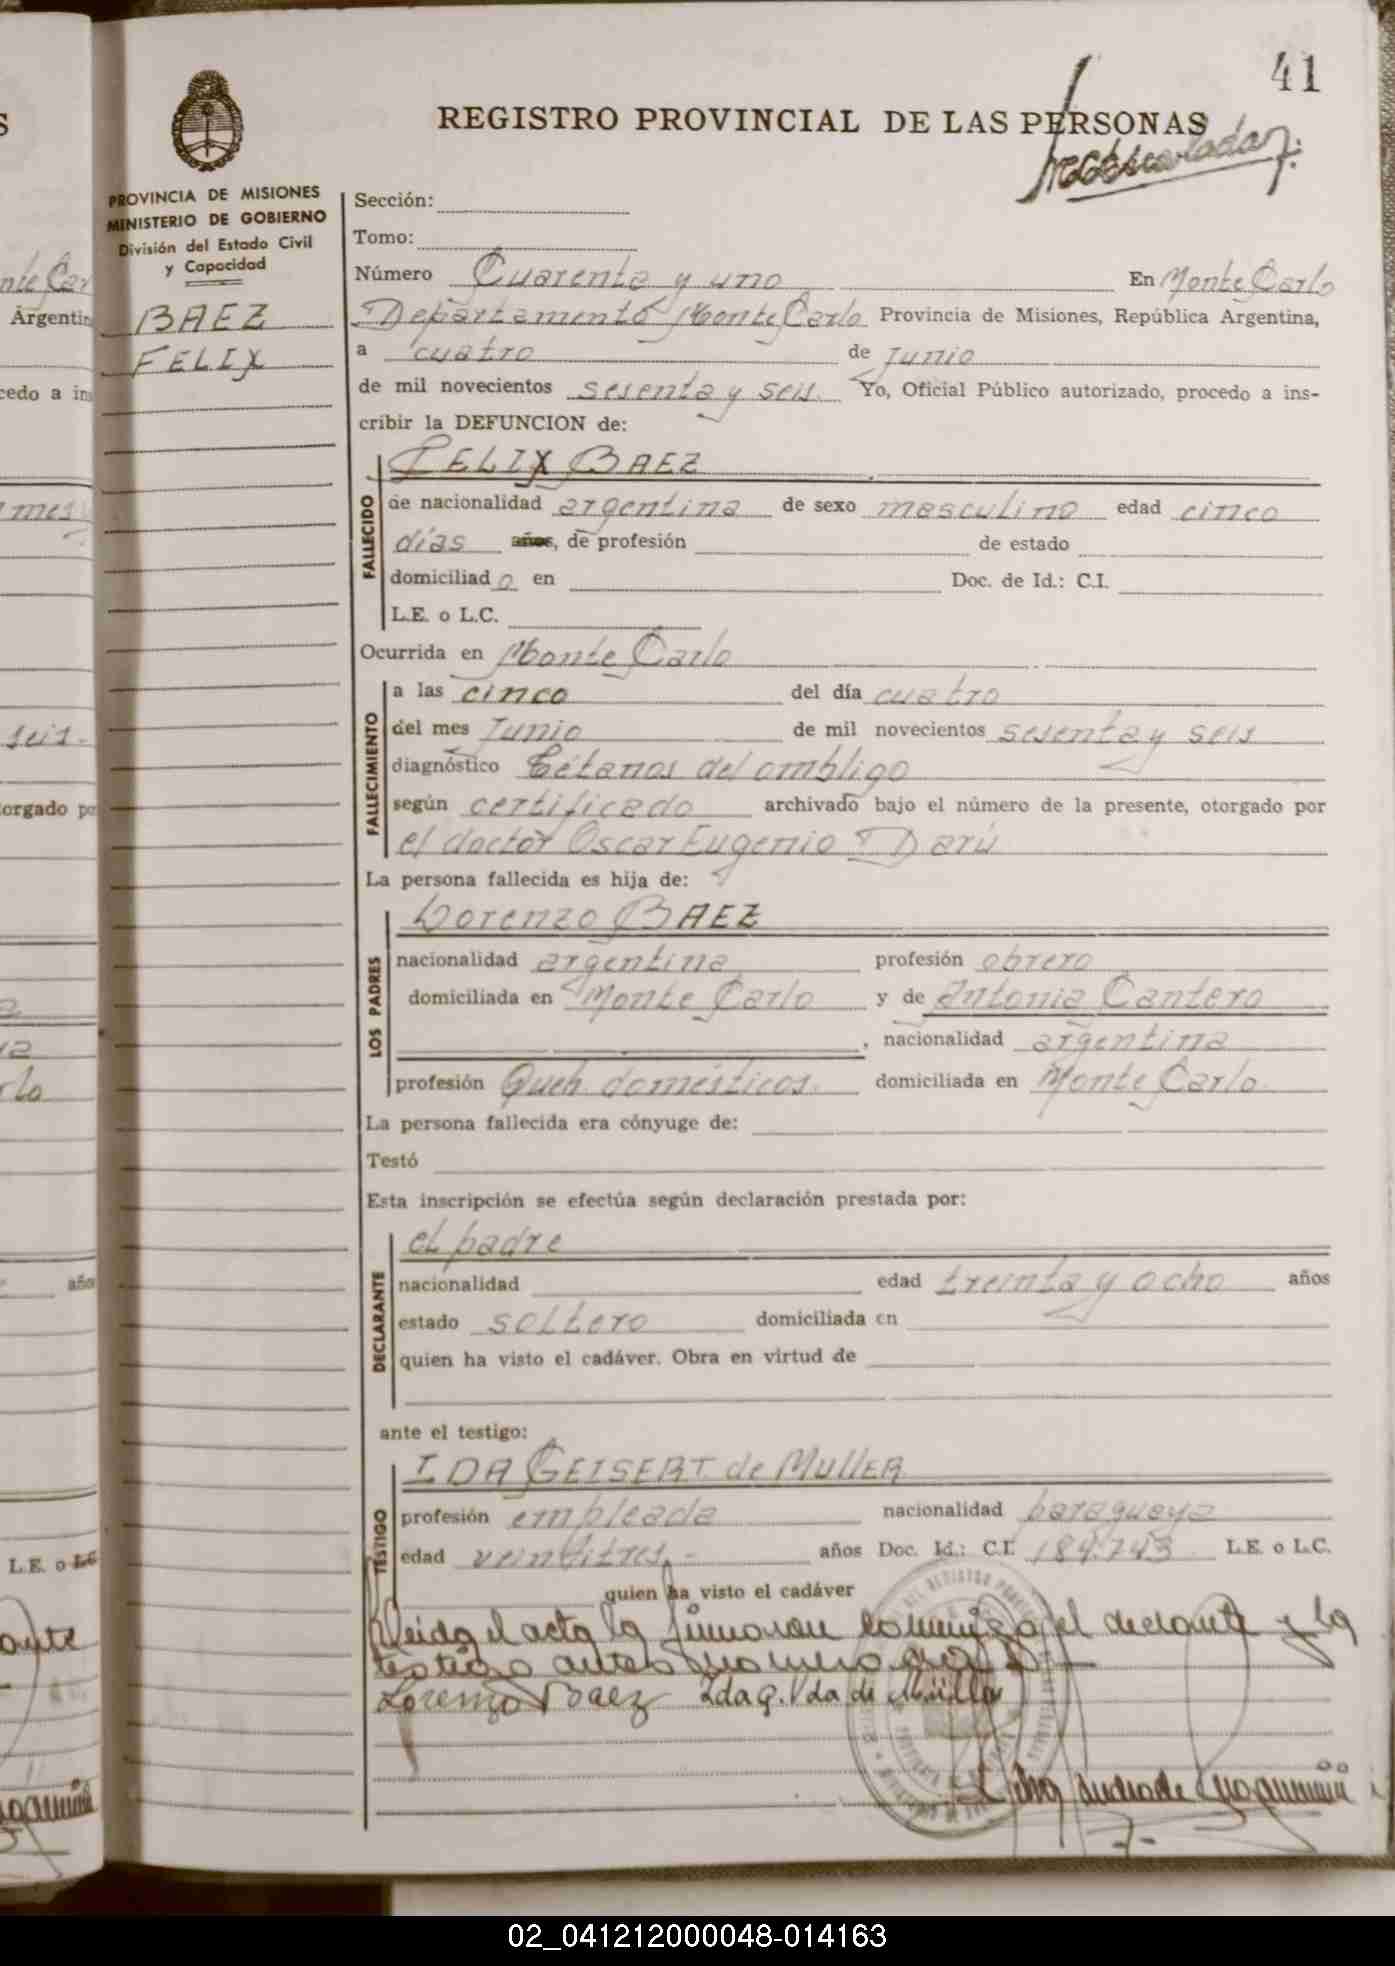 41
REGISTRO PROVINCIAL DE LAS PERSONAS
PROVINCIA DE MISIONES
MINISTERIO DE GOBIERNO
División del Estado Civil
y Capacidad
BAEZ
FELIX
Sección:
Tomo:
Número Cuarenta y uno En Monte Carlo
Departamento Monte Carlo Provincia de Misiones, República Argentina,
a cuatro de Junio
de mil novecientos sesenta y seis. Yo, Oficial Público autorizado, procedo a ins-
cribir la DEFUNCION de:
FELIX BAEZ
FALLECIDO
de nacionalidad argentina de sexo masculino edad cinco
días años, de profesión de estado
domiciliad o en Doc. de Id.: C.I.
L.E. o L.C.
Ocurrida en Monte Carlo
FALLECIMIENTO
a las cinco del día cuatro
del mes Junio de mil novecientos sesenta y seis
diagnóstico Tétanos del ombligo
según certificado archivado bajo el número de la presente, otorgado por
el doctor Oscar Eugenio Darú
La persona fallecida es hija de:
LOS PADRES
Lorenzo BAEZ
nacionalidad argentina profesión obrero
domiciliada en Monte Carlo y de Antonia Cantero
, nacionalidad argentina
profesión Queh. domésticos. domiciliada en Monte Carlo.
La persona fallecida era cónyuge de:
Testó
Esta inscripción se efectúa según declaración prestada por:
DECLARANTE
el padre
nacionalidad edad treinta y ocho años
estado soltero domiciliada en
quien ha visto el cadáver. Obra en virtud de
ante el testigo:
TESTIGO
IDA GEISERT de MULLER
profesión empleada nacionalidad paraguaya
edad veintitres.- años Doc. Id.: C.I. 184.743 L.E. o L.C.
quien ha visto el cadáver
Leida el acta la firmaron conmigo el declarante y la
testigo antes
Lorenzo Baez Ida G. Vda de Müller
Andrade
02_041212000048-014163